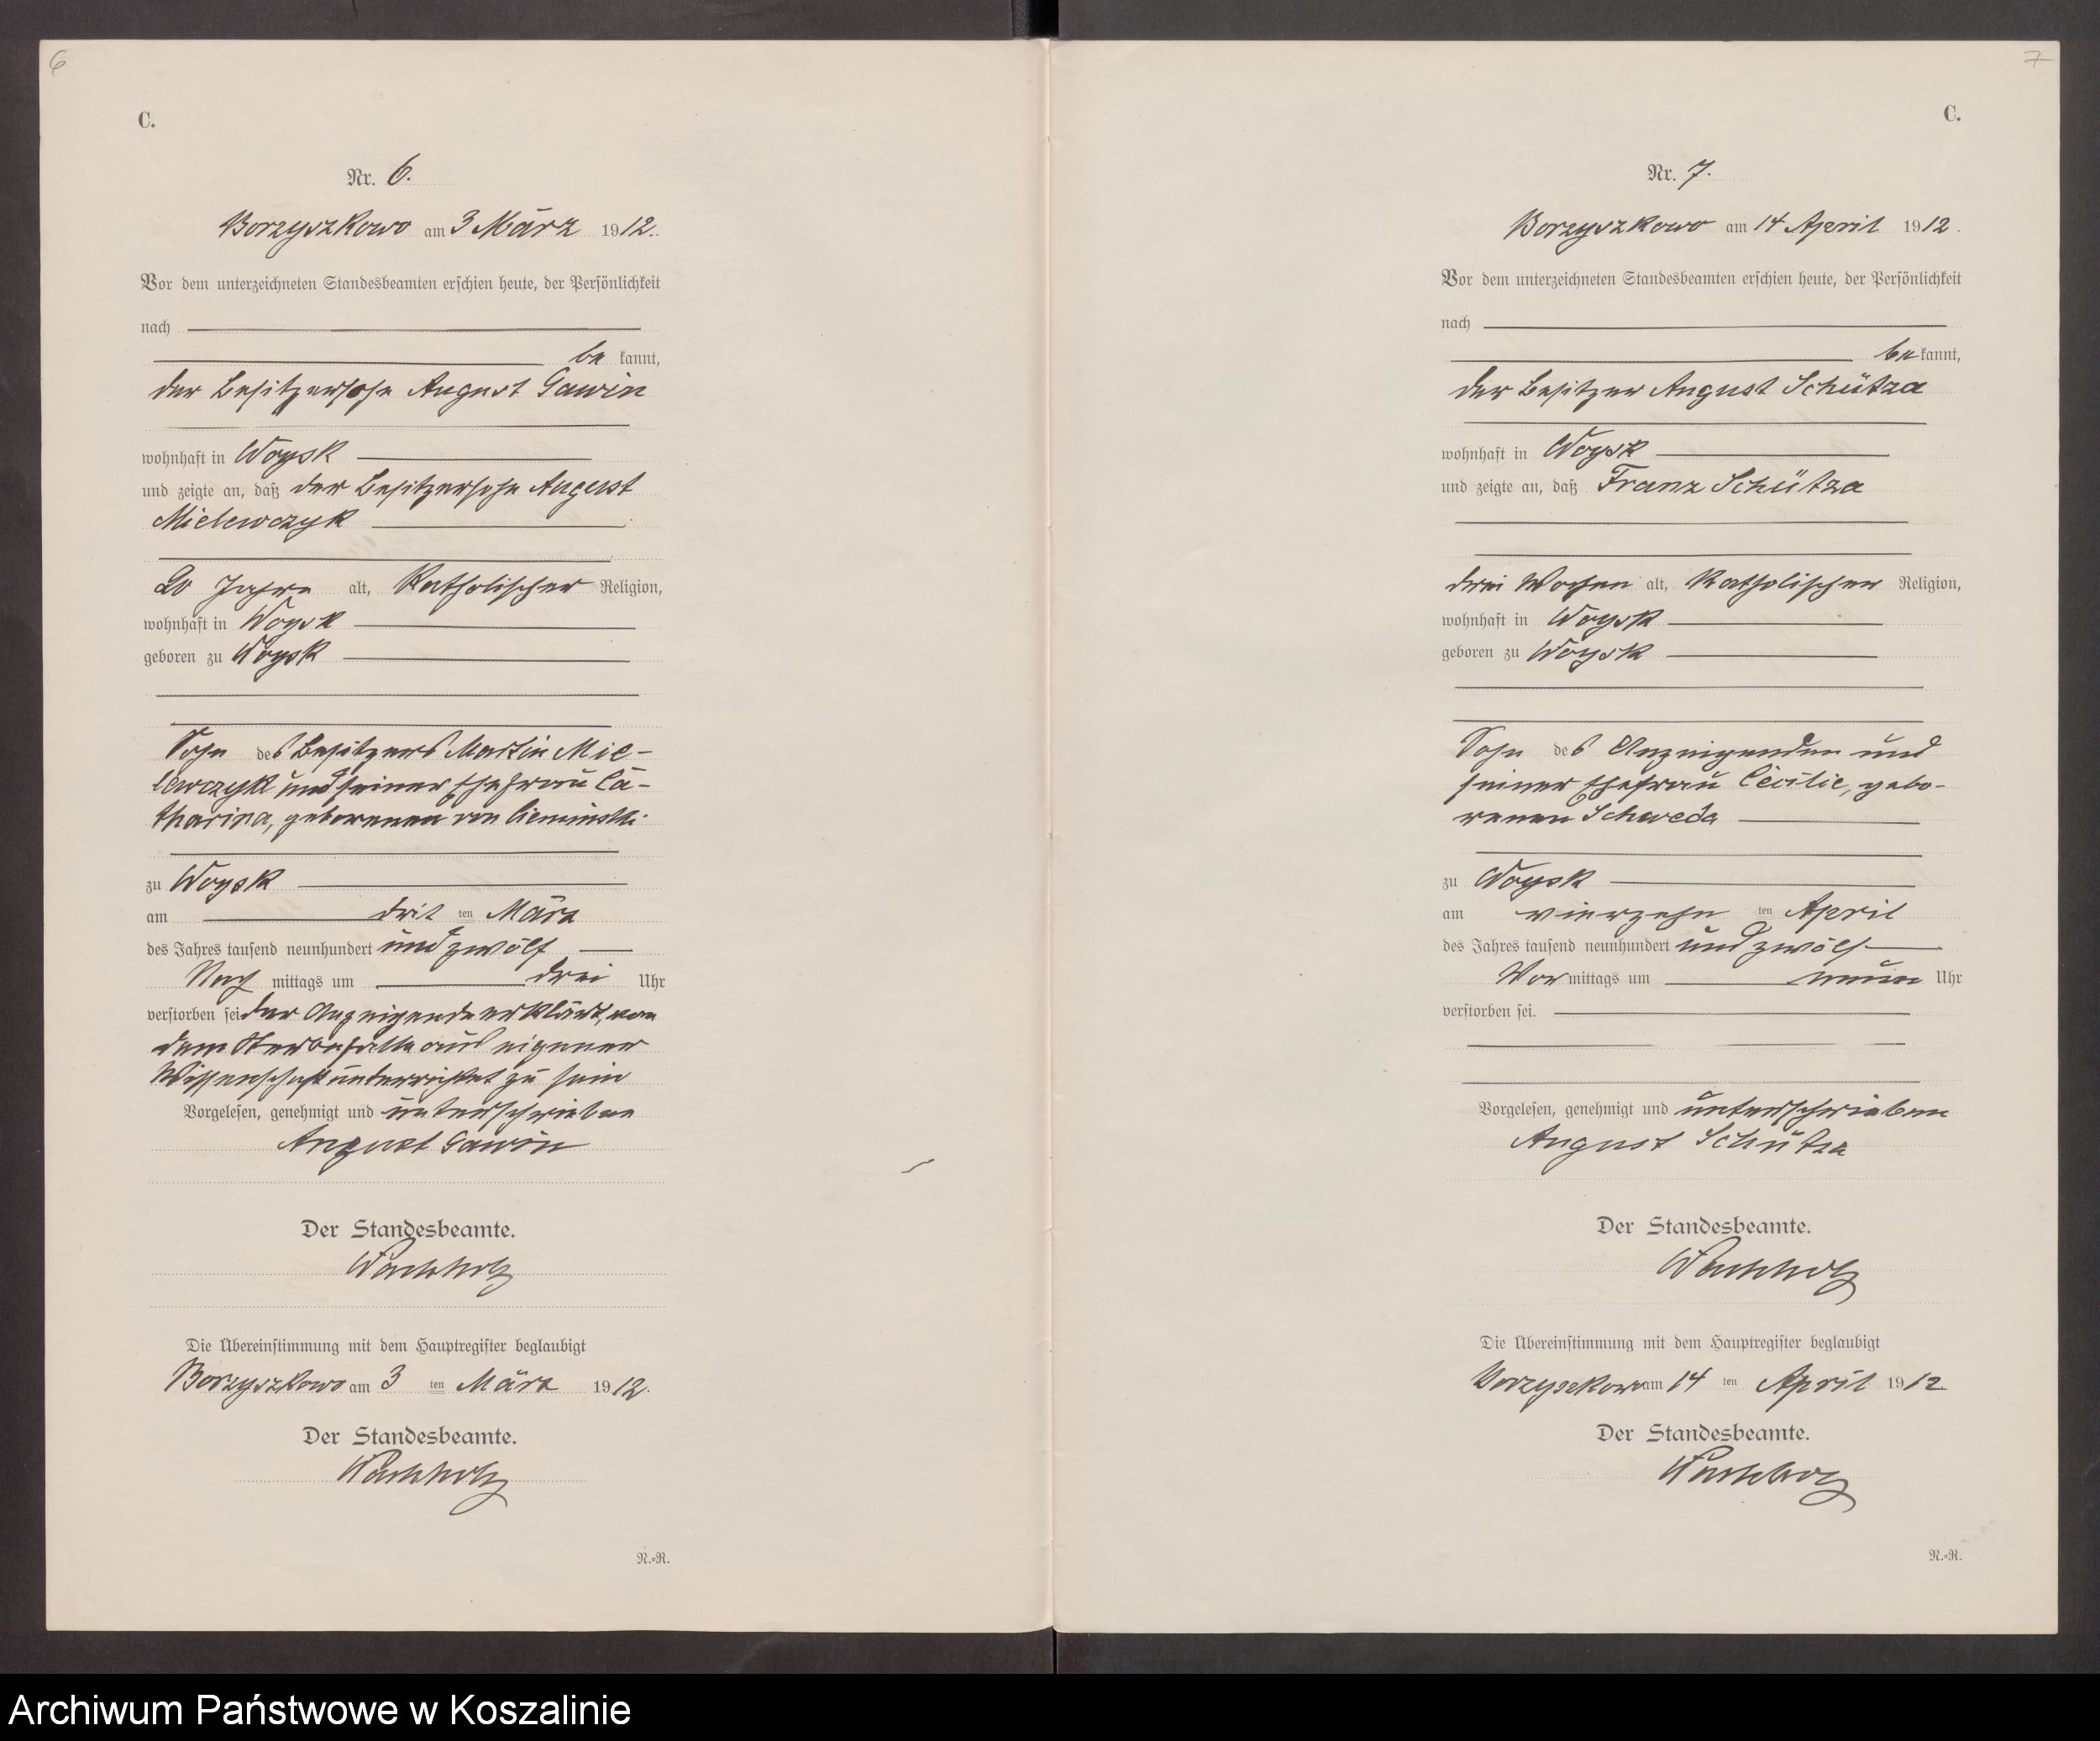 6
C.
Nr. 6.
Borzyszkowo am 3 März 1912.
Vor dem unterzeichneten Standesbeamten erschien heute, der Persönlichkeit
nach
be kannt,
der Besitzersohn August Gawin
wohnhaft in Woysk
und zeigte an, daß der Besitzersohn August
Mielewczyk
20 Jahre alt, Katholischer Religion,
wohnhaft in Woysk
geboren zu Woysk
Sohn des Besitzers Martin Mie-
lewczyk und seiner Ehefrau Ca-
tharina, geborenen von Cieminski
zu Woysk
am drit ten März
des Jahres tausend neunhundert und zwölf
Nach mittags um drei Uhr
verstorben sei der Anzeigende erklärt, von
dem Sterbefalle aus eigener
Wissenschaft unterrichtet zu sein
Vorgelesen, genehmigt und unterschrieben
August Gawin
Der Standesbeamte.
Wachholz
Die Übereinstimmung mit dem Hauptregister beglaubigt
Borzyszkowo am 3 ten März 1912.
Der Standesbeamte.
Wachholz
N.-R.
7
C.
Nr. 7.
Borzyszkowo am 14 April 1912.
Vor dem unterzeichneten Standesbeamten erschien heute, der Persönlichkeit
nach
be kannt,
der Besitzer August Schütza
wohnhaft in Woysk
und zeigte an, daß Franz Schütza
drei Wochen alt, Katholischer Religion,
wohnhaft in Woysk
geboren zu Woysk
Sohn des Anzeigenden und
seiner Ehefrau Cecilie, gebo-
renen Schweda
zu Woysk
am vierzehn ten April
des Jahres tausend neunhundert und zwölf
Vor mittags um neun Uhr
verstorben sei.
Vorgelesen, genehmigt und unterschrieben
August Schütza
Der Standesbeamte.
Wachholz
Die Übereinstimmung mit dem Hauptregister beglaubigt
Borzyszkowo am 14 ten April 1912
Der Standesbeamte.
Wachholz
N.-R.
Archiwum Państwowe w Koszalinie